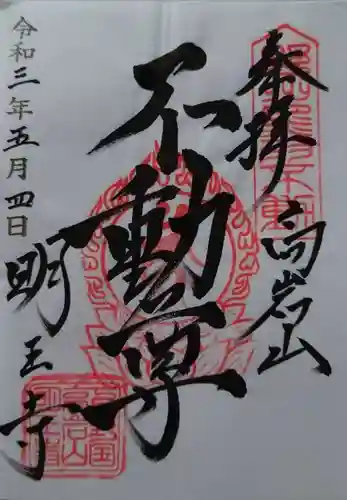 奉拝
高岩山
不動尊
令和三年五月四日
明王寺